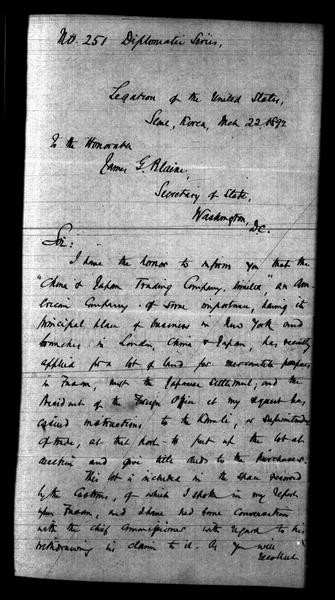 No. 251 Diplomatic Series.
Legation of the United States,
Seoul, Korea, Mch 22 1892
To the Honorable
James G. Blaine,
Secretary of State,
Washington, D.C.
Sir:
I have the honor to inform you that the
"China & Japan Trading Company, limited," an Am-
erican Company of some importance, having its
principal place of business in New York and
branches in London, China & Japan, has recently
applied for a lot of land for mercantile purposes
in Fusan, near the Japanese settlement, and the
President of the Foreign Office at my request has
issued instructions to the Kamli, or Superintendent
of trade, at that port to put up the lot at
auction and give title deeds to the purchaser.
This lot is included in the space reserved
by the Customs, of which I spoke in my report
upon Fusan, and I have had some conversation
with the Chief Commissioner with regard to his
withdrawing his claim to it. As you will
recollect